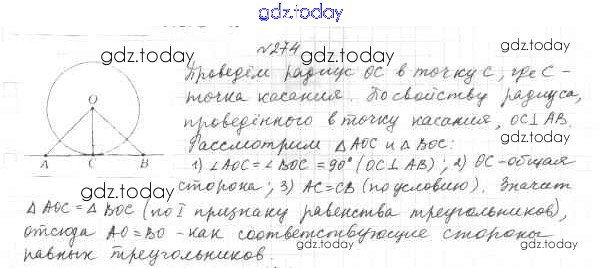 gdz.today
№274
gdz.today
gdz.today
Проведём радиус OC в точку C, где C -
точка касания. По свойству радиуса,
проведённого в точку касания, OC⊥AB.
gdz.today
gdz.today
O
Рассмотрим △AOC и △BOC:
A C B
1) ∠AOC=∠BOC=90° (OC⊥AB); 2) OC-общая
сторона; 3) AC=CB (по условию). Значит
gdz.today
gdz.today
△AOC=△BOC (по I признаку равенства треугольников),
отсюда AO=BO - как соответствующие стороны
равных треугольников.
gdz.today
gdz.today